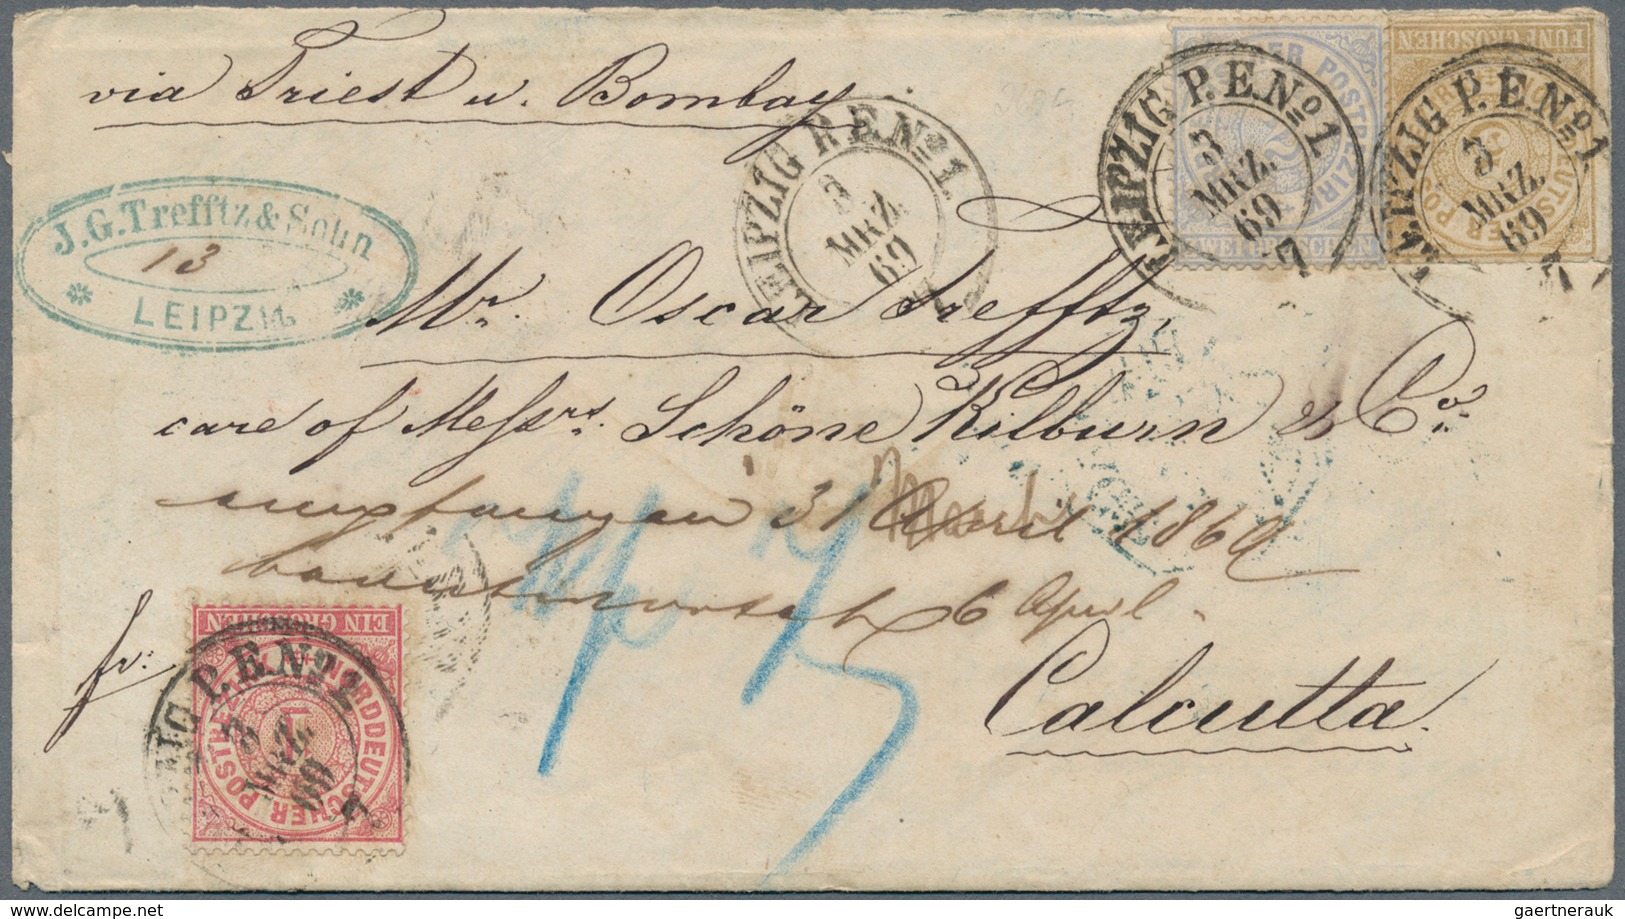 via Triest u. Bombay
J.G. Trefftz & Sohn
13
LEIPZIG
LEIPZIG P.E.No. 1.
3
MRZ.
69
LEIPZIG P.E.No. 1
3
MRZ.
69
7
ZWEI GROSCHEN
LEIPZIG P.E.No. 1
3
MRZ.
69
7
FÜNF GROSCHEN
Mr. Oscar Trefftz,
care of Messrs. Schöne Kilburn & Co.
empfangen 31 March 1869
beantwortet 6 April
fr:
Calcutta.
EIN GROSCHEN
NORDDEUTSCHER POSTBEZIRK
1
P.E.No. 1
delcampe.net
gaertnerauk